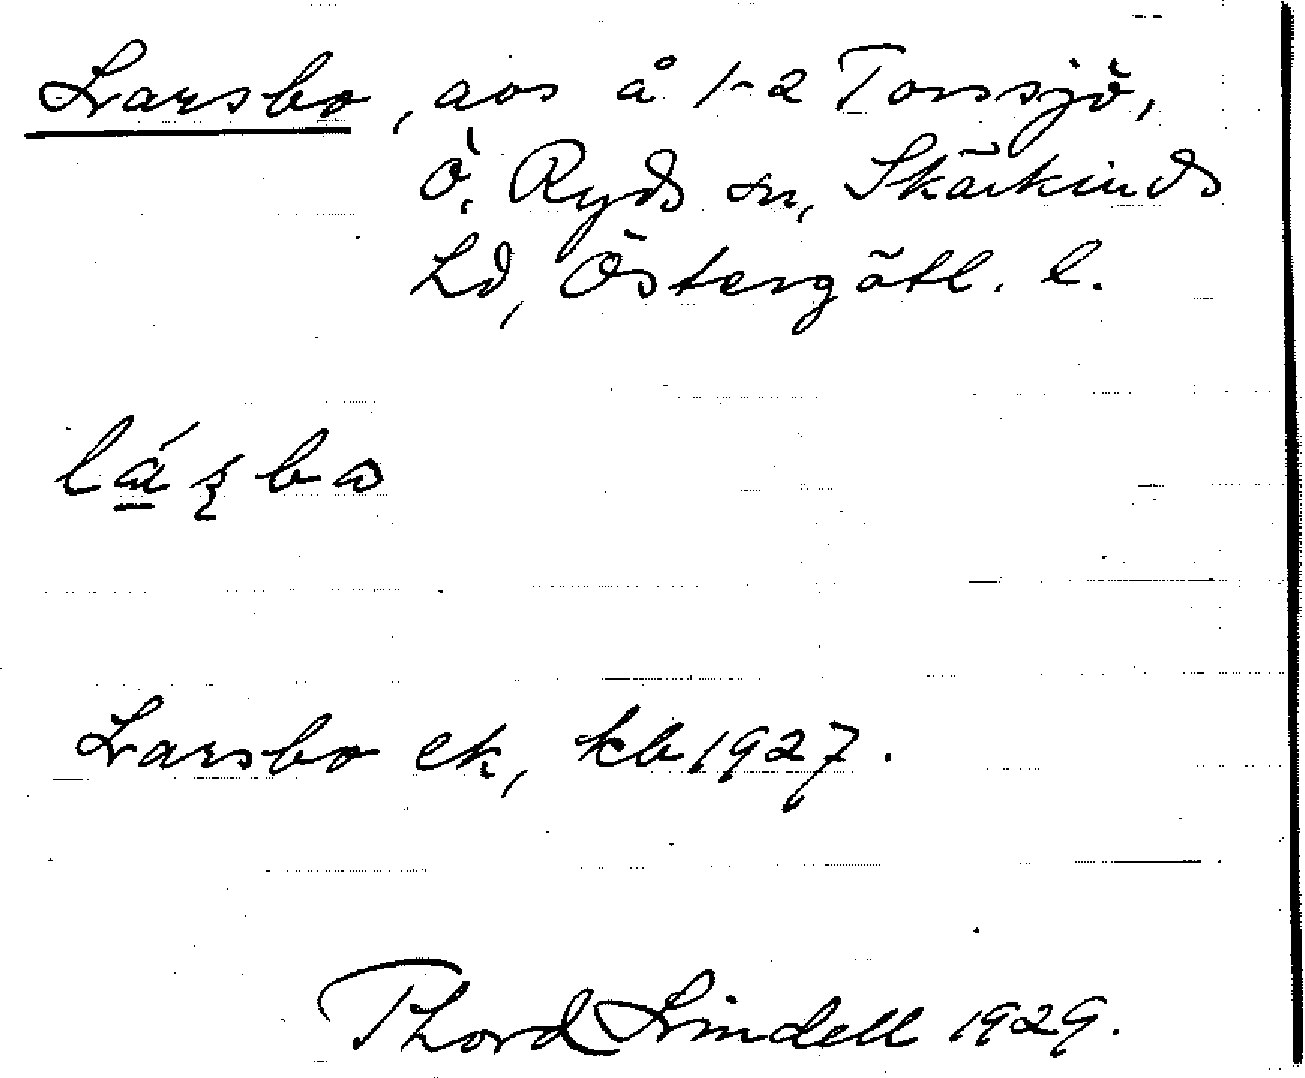 Larsbo, avs å 1-2 Torssjö,
Ö. Ryds sn, Skärkinds
hd, Östergötl. l.
lázba
Larsbo ek, kb 1927.
Thord Lindell 1929.